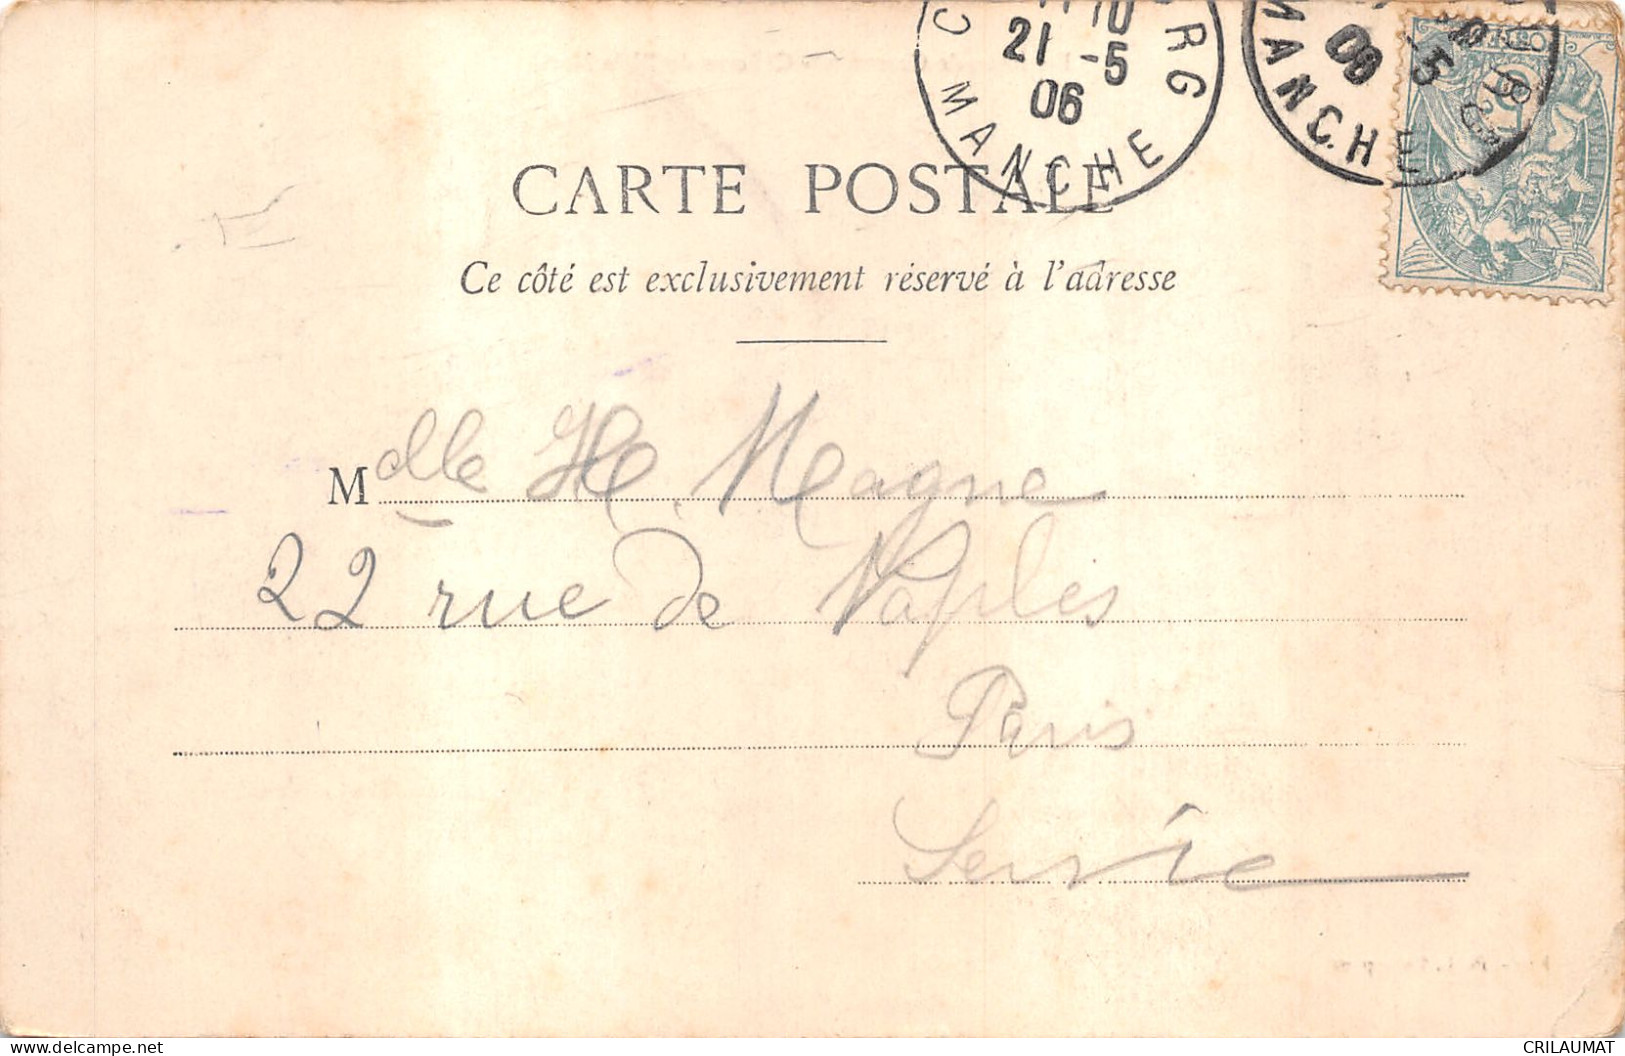 11 10
21 -5
06
MANCHE
06
-5
MANCHE
CARTE POSTALE
Ce côté est exclusivement réservé à l'adresse
Mdlle H. Magne
22 rue de Naples
Paris
Seine
www.delcampe.net
CRILAUMAT